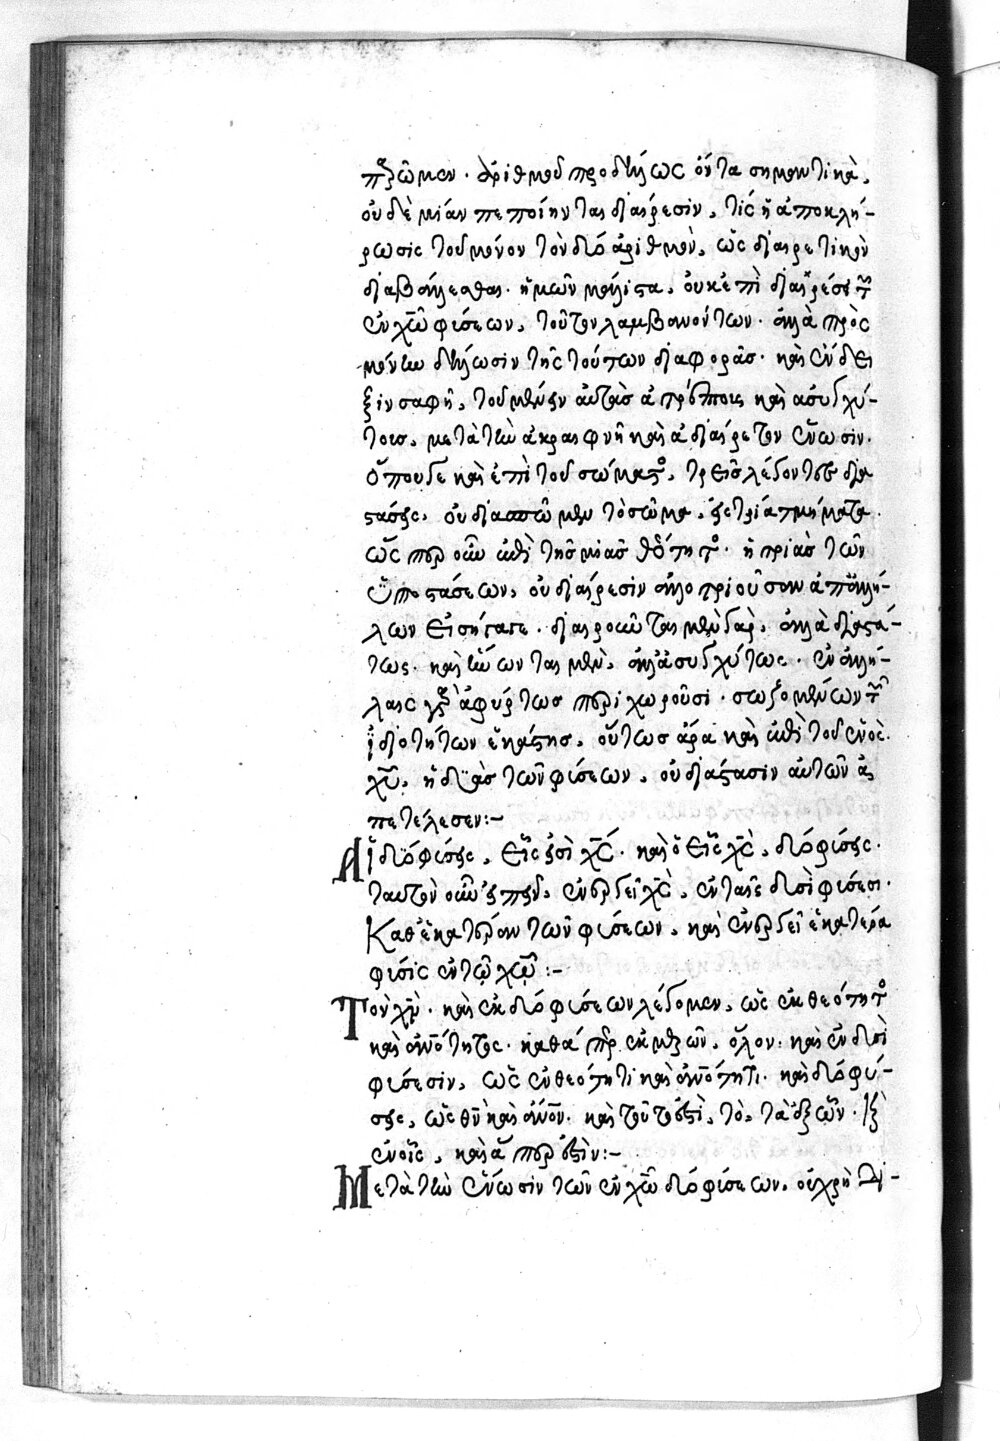 πτόωμεν. ἀριθμοῦ προδήλως ὄντα σημαντικὰ,
οὐδὲ μίαν πεποίηνται διαίρεσιν, τίς ἡ ἀποκλή-
ρωσις τοῦ μόνον τὸν δύο ἀριθμὸν, ὡς διαιρετικὸν
διαβάλλεσθαι. ἡμῶν μάλιστα, οὐκ ἐπὶ διαιρέσει τῶν
ἐν χῶ φύσεων, τοῦτον λαμβανόντων. ἀλλὰ πρὸς
μόνην δήλωσιν τῆς τούτων διαφορᾶς. καὶ ἔνδει
ξιν σαφῆ, τοῦ μένειν αὐτὰς ἀτρέπτοις καὶ ἀσυγχύ-
τοις. μετὰ τὴν ἀκραιφνῆ καὶ ἀδιαίρετον ἕνωσιν.
ὅπου δὲ καὶ ἐπὶ τοῦ σώματος, τρεῖς λέγοντες δια
στάσεις, οὐ διασπῶμεν τὸ σῶμα, εἰς τρία τμήματα.
ὡς περ οὖν ἐπὶ τῆς μιᾶς θεότητος. ἡ τριὰς τῶν
ὑποστάσεων, οὐ διαίρεσιν ἀλλοτριοῦσαν ἀπαλλή-
λων εἰσήγαγε. διαιροῦνται μὲν γὰρ, ἀλλὰ διαστά-
τως. καὶ ἑνῶνται μὲν, ἀλλ' ἀσυγχύτως. ἐν ἀλλή-
λαις γὰρ ἀφύρτως περιχωροῦσι. σωζομένων τῶν
ἰδιοτήτων ἑκάστης. οὕτως ἄρα καὶ ἐπὶ τοῦ ἑνὸς
χυ, ἡ δυὰς τῶν φύσεων, οὐ διάστασιν αὐτῶν ἀ
πετέλεσεν:-
Αἱ δύο φύσεις, εἷς ἐστὶ χς. καὶ ὁ εἷς χς, δύο φύσεις.
ταυτὸν οὖν εἰπεῖν, ἐνεργεῖ χς, ἐν ταῖς δυσὶ φύσεσι.
Καθ' ἑκατέραν τῶν φύσεων, καὶ ἐνεργεῖ ἑκατέρα
φύσις ἐν τῷ χω:-
Τὸν χν. καὶ ἐκ δύο φύσεων λέγομεν, ὡς ἐκ θεότητος
καὶ ἀνότητος. καθάπερ ἐκ μερῶν, ὅλον. καὶ ἐν δυσὶ
φύσεσιν, ὡς ἐν θεότητι καὶ ἀνότητι. καὶ δύο φύ-
σεις, ὡς θν καὶ ἄνον. καὶ τοῦτό ἐστι, τὸ, τὰ ἐξ ὧν.
ἐν οἷς, καὶ ἅ περ ἐστίν:-
Μετὰ τὴν ἕνωσιν τῶν ἐν χω δύο φύσεων, οὐ χρὴ δι-